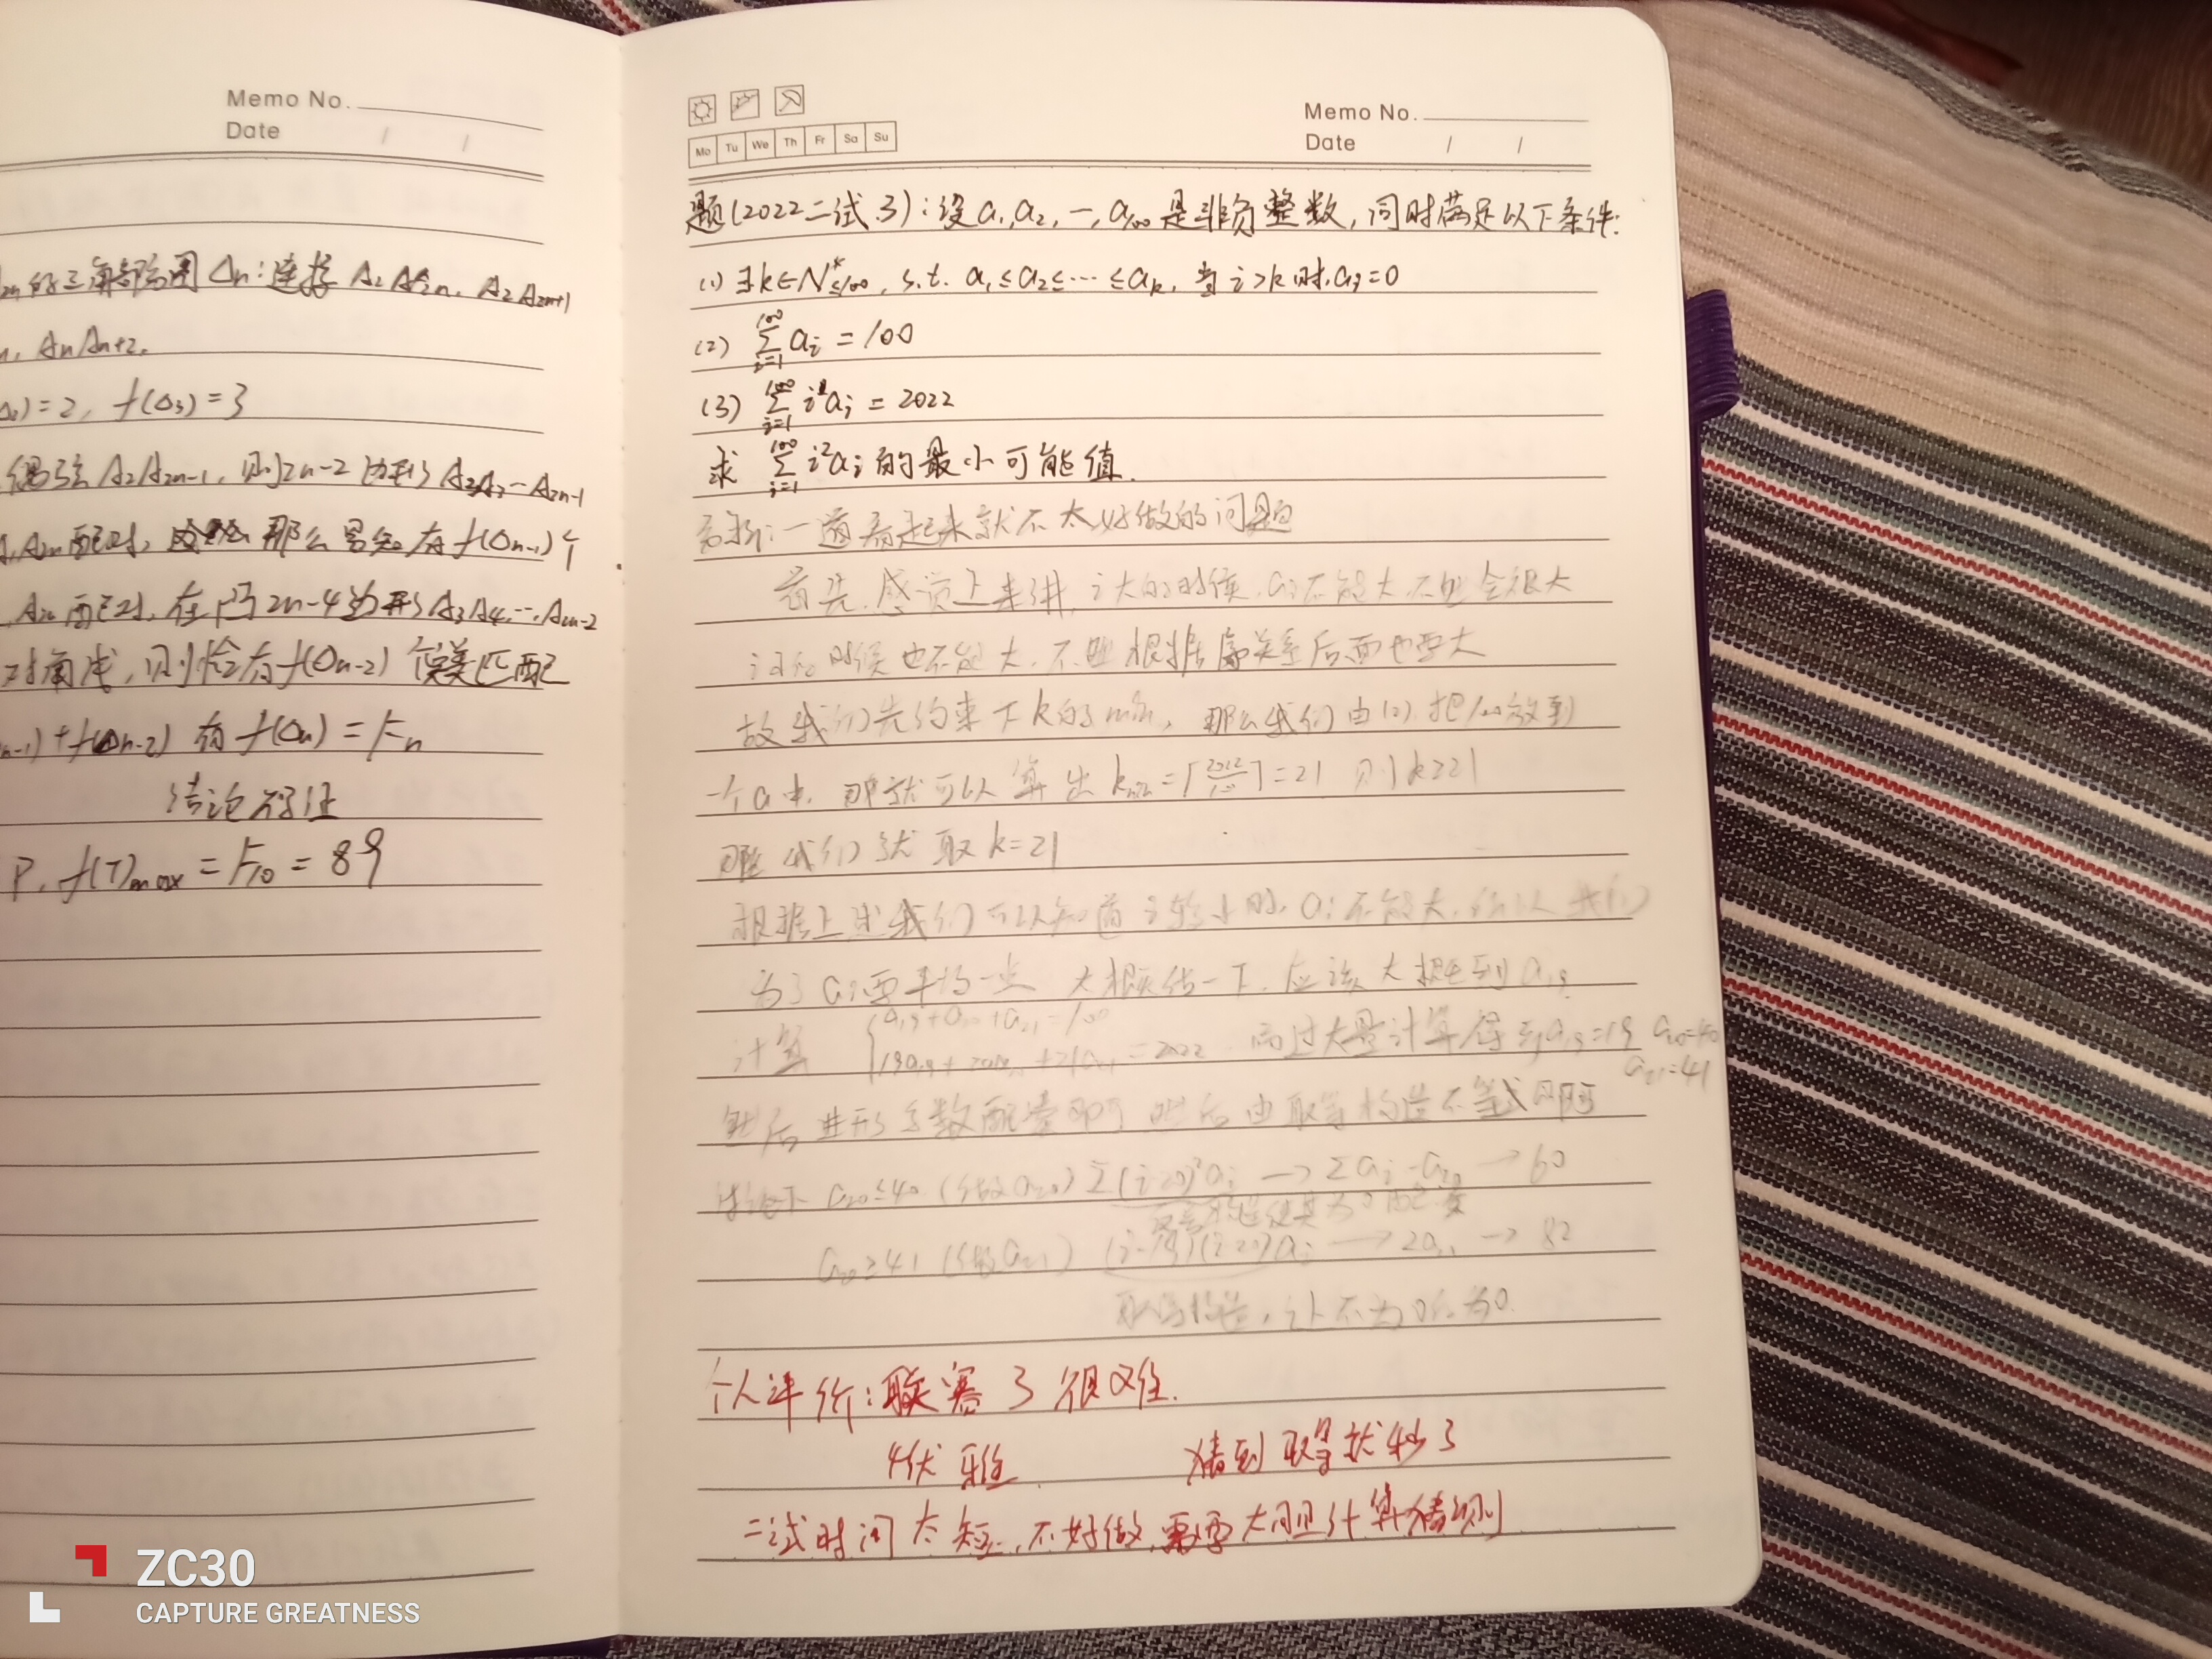 Memo No.
Date / /
2n 的三角剖分用 Δn: 连接 A₂A₂n, A₂A₂n+1
n, AnAn+2.
)=2, f(Δ₃)=3
A₂A₂n-1, 则2n-2边形 A₂A₃-A₂n-1
配对, 那么易知有 f(Δn-1)个
配对, 在凸2n-4边形 A₃A₄…A₂n-2
对角线, 则恰有f(Δn-2)个完美匹配
n-1)+f(Δn-2) 有 f(Δn)=Fn
结论得证
P. f(T)max = F₁₀ = 89
Mo Tu We Th Fr Sa Su
Memo No.
Date / /
题(2022二试.3): 设a₁,a₂,—,a₁₀₀是非负整数, 同时满足以下条件:
(1) ∃k∈N*≤100, s.t. a₁≤a₂≤…≤ak, 当i>k时,ai=0
(2) Σ(i=1→100) ai = 100
(3) Σ(i=1→100) i ai = 2022
求 Σ(i=1→100) i²ai 的最小可能值.
一道看起来就不太好做的问题
首先, 感觉上来讲, i大的时候, ai不能大, 不然会很大
时候也不能大, 不然根据序关系后面也要大
故我们先约束下k的min, 那么我们由(2), 把100放到
一个a中, 那就可以算出 kmin=⌈2022/100⌉=21 则k≥21
我们就取k=21
根据上述我们可以知道i较小时, ai不能大, 所以我们
为了ai要平均一点 大概估一下, 应该大概到a₁₉
计算 {a₁₉+a₂₀+a₂₁=100
19a₁₉+20a₂₀+21a₂₁=2022 而过大量计算得到a₁₉=19 a₂₀=40
a₂₁=41
然后进行系数配凑即可 然后由取等构造不等式即可
讨论下 a₂₀≤40 (消a₂₀) Σ(i-20)²ai → Σai-a₂₀ → 60
a₂₀≥41 (消a₂₁) (i-19)(i-20)ai → 2a₂₁ → 82
取等构造, 让不为0的为0.
个人评价: 联赛3很难.
优雅 猜到取等就秒了
二试时间太短, 不好做, 需要大胆计算猜测
ZC30
CAPTURE GREATNESS